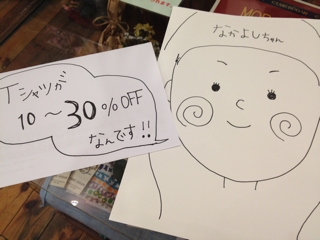 なかよしちゃん
Tシャツが
10〜30%OFF
なんです!!